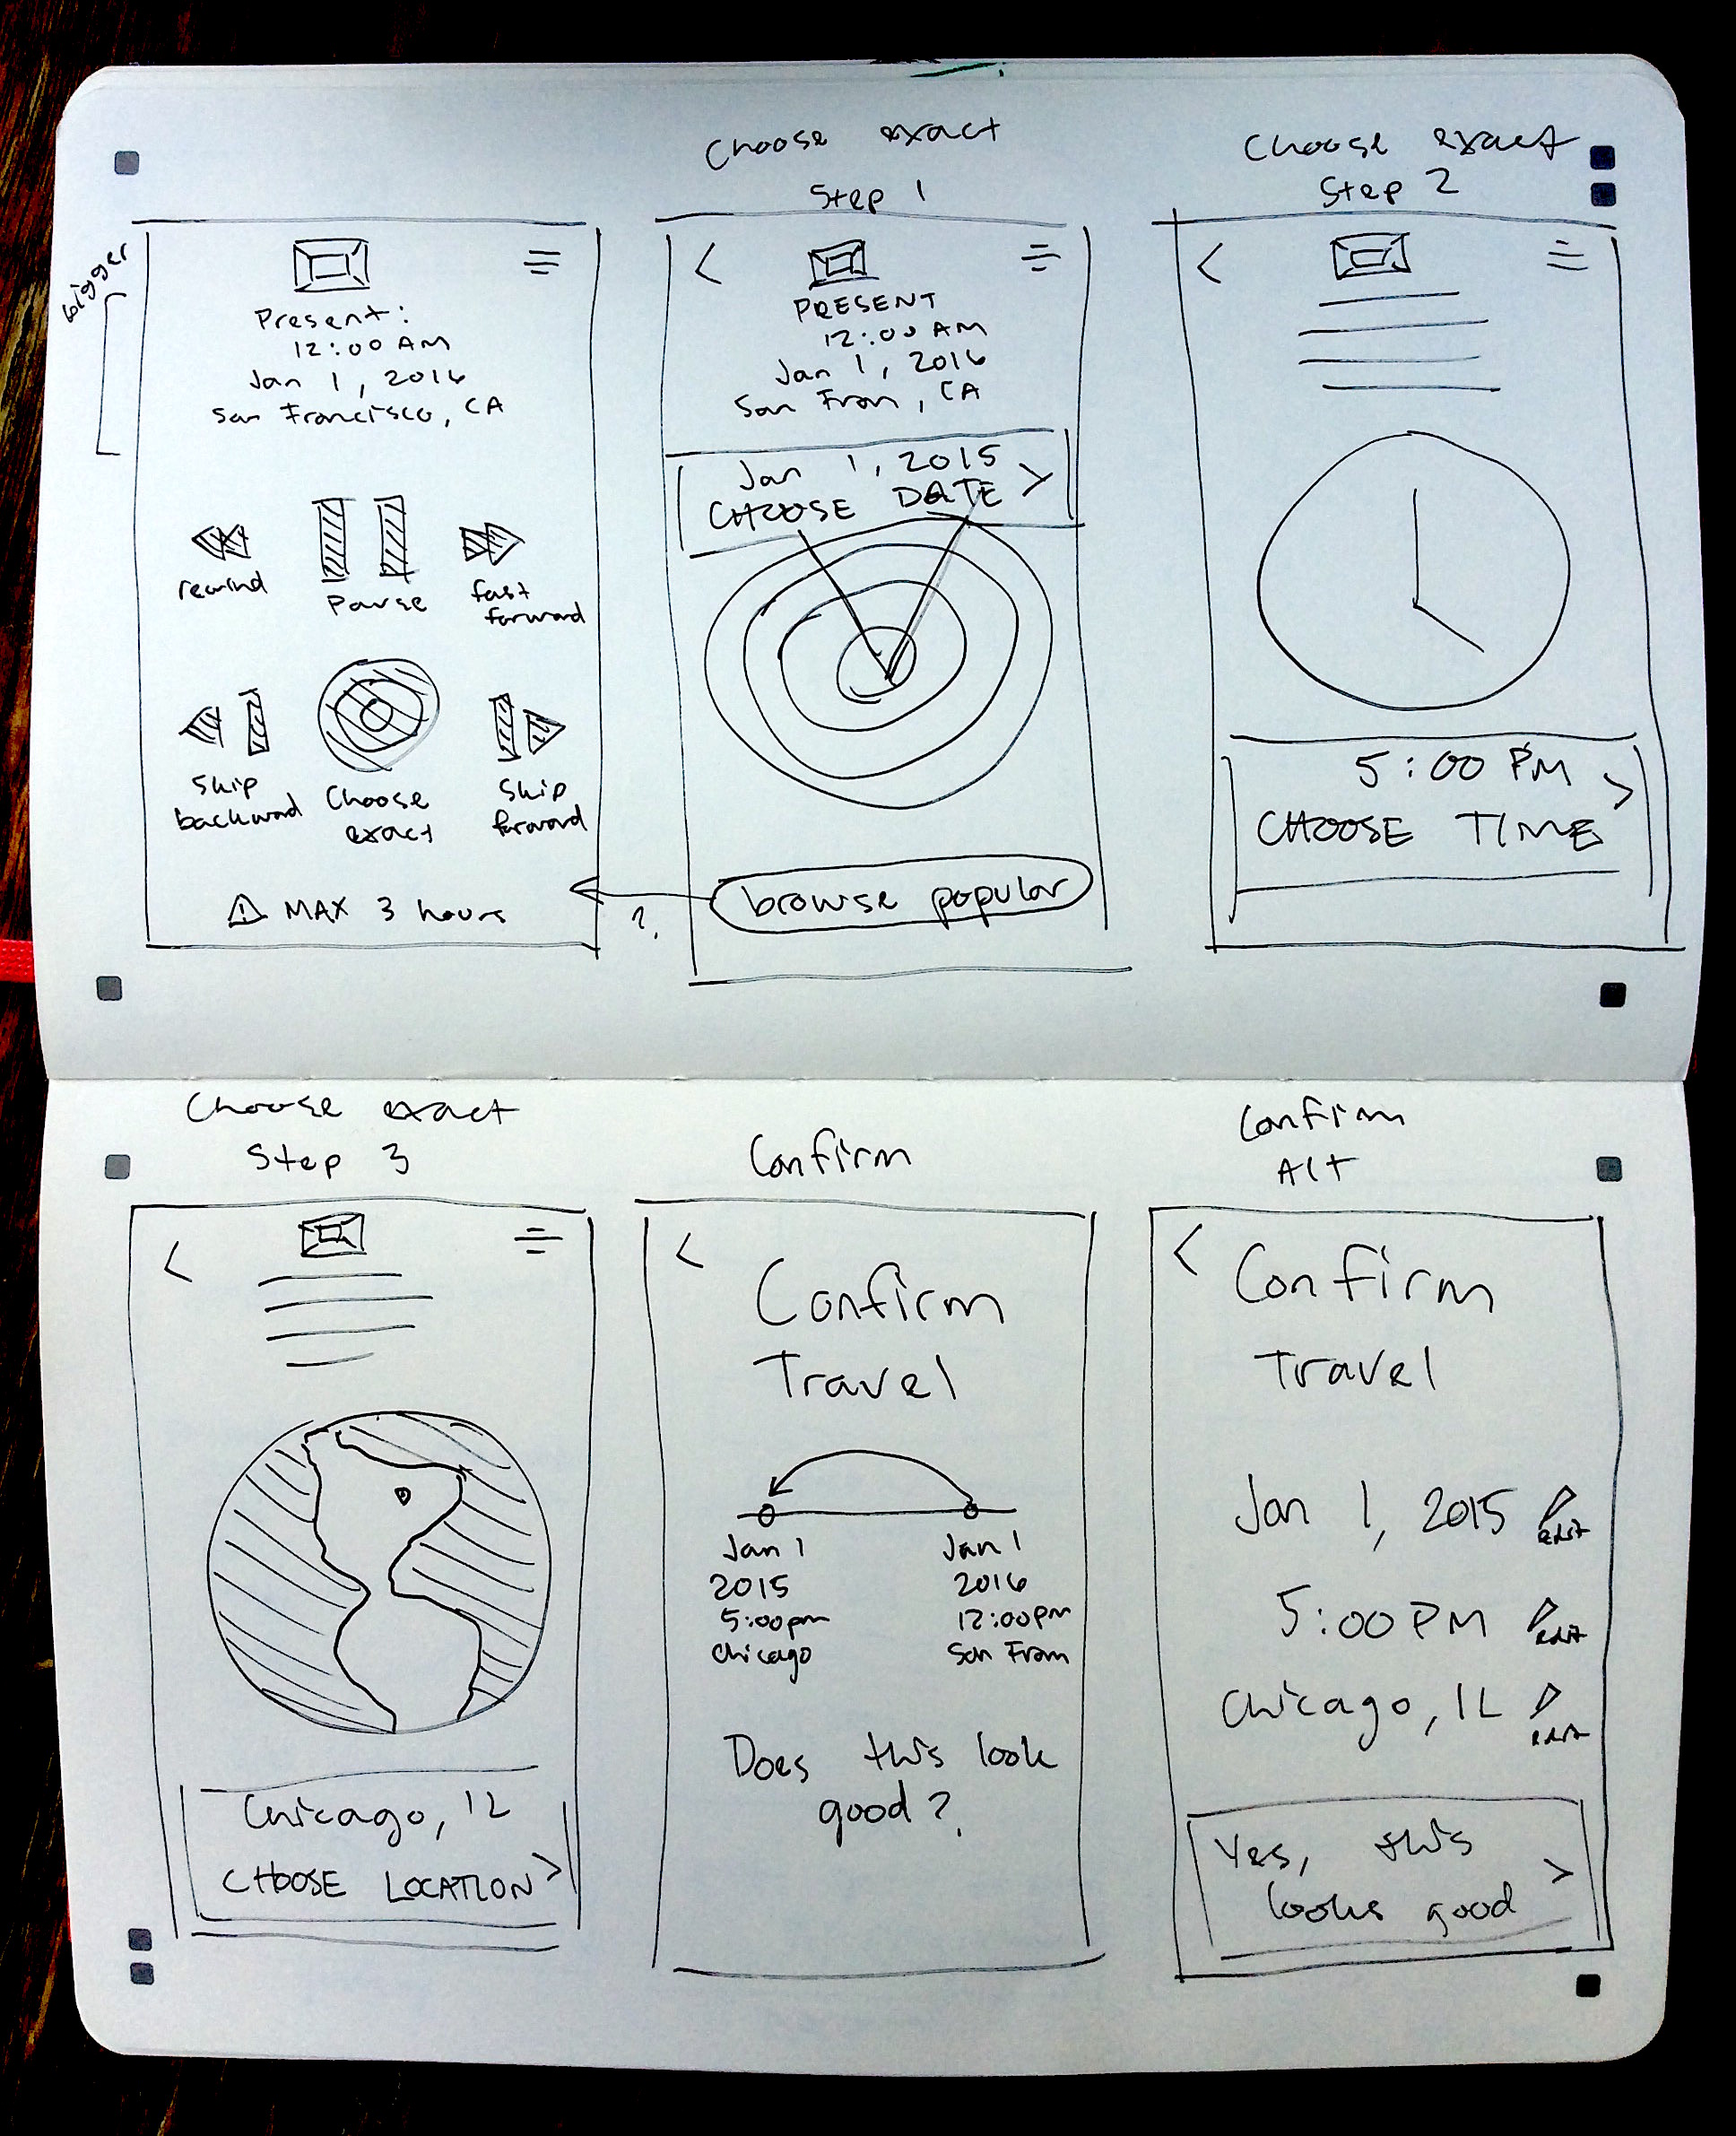 bigger
Present:
12:00 AM
Jan 1, 2016
San Francisco, CA
rewind
Pause
fast
forward
Skip
backward
Choose
exact
Skip
forward
⚠ MAX 3 hours
Choose exact
Step 1
<
PRESENT
12:00 AM
Jan 1, 2016
San Fran, CA
Jan 1, 2015
CHOOSE DATE >
browse popular
?
Choose exact
Step 2
<
5:00 PM
CHOOSE TIME >
Choose exact
Step 3
<
Chicago, IL
CHOOSE LOCATION >
Confirm
<
Confirm
Travel
Jan 1
2015
5:00pm
Chicago
Jan 1
2016
12:00pm
San Fran
Does this look
good?
Confirm
Alt
<
Confirm
Travel
Jan 1, 2015 edit
5:00 PM edit
Chicago, IL edit
Yes, this
looks good >